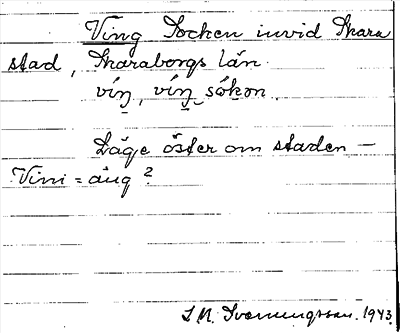 Ving Socken invid Skara
stad, Skaraborgs län.
víŋ, víŋ sókon.
Läge öster om staden –
Vini = äng?
S M. Svenungsson. 1943.